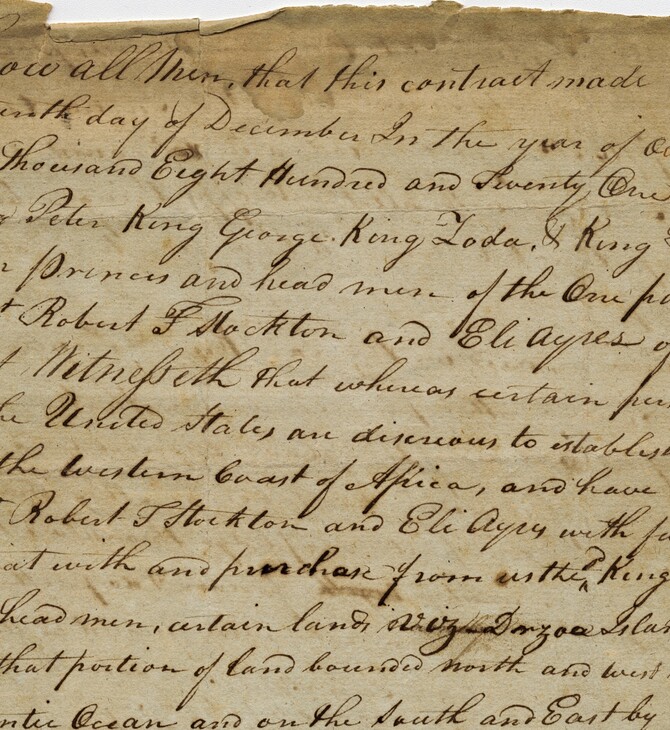 ow all Men, that this contract made
enth day of December In the year of O
Thousand Eight Hundred and Twenty One
Peter King George King Zoda, & King
princes and head men of the One p
t Robert F Stockton and Eli Ayres of
Witnesseth that whereas certain per
he United States are disereous to establis
the western Coast of Africa, and have
Robert F Stockton and Eli Ayres with fu
at with and purchase from us the sd King
head men, certain lands viz Dozoa Islan
that portion of land bounded north and west
ntic Ocean and on the South and East by